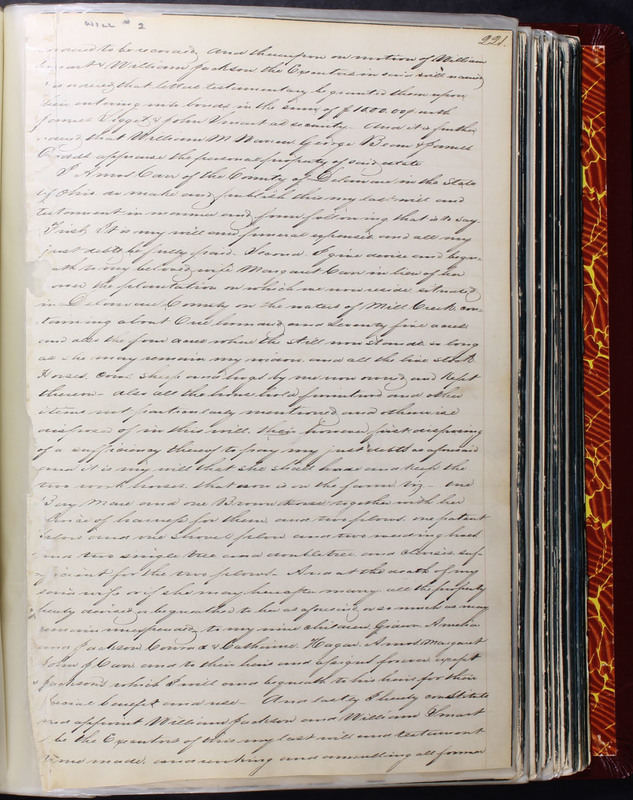 Will # 2
221.
to be recorded, And thereupon on motion of William
& William Jackson the Executors in said will named
is ordered that letters testamentary be granted them upon
their entering into bonds in the sum of $1500.00 with
James & John Smart as security. And it is further
ordered that William M Warren George Brown & James
appraise the personal property of said estate
I Amos Carr of the County of Delaware in the State
of Ohio do make and publish this my last will and
testament in manner and form following that is to say
First, It is my will and funeral expenses and all my
just debts be fully paid. Second I give devise and bequ-
ath to my beloved wife Margaret Carr in lieu of her
the plantation on which we now reside situated
in Delaware County on the waters of Mill Creek, con-
taining about One hundred and seventy five acres
and also the four acres where the still now stands so long
as she may remain my widow and all the live stock
Horses, Cows sheep and hogs by me now owned and kept
thereon - also all the household furniture and other
items not particularly mentioned and otherwise
disposed of in this will. first disposing
of a sufficiency thereof to pay my just debts as aforesaid
and it is my will that she shall have and keep the
two work horses that now is at the farm viz - one
Bay Mare and one Brown Horse together with her
choice of harness for them and two plows. one patent
plow and one shovel plow and two weeding hoes
two single tree and double tree and clevises suf-
ficient for the two plows. And at the death of my
said wife or if she may hereafter marry all the property
hereby devised or bequeathed to her as aforesaid or so much as may
remain unexpended, to my nine children Amelia
Jackson Conrad & Catherine, Hagar Amos Margaret
John J Carr and to their heirs and assigns forever except
Jacksons which I will and bequeath to his heirs for their
special benefit and use - And lastly I hereby constitute
and appoint William Jackson and William Smart
to be the Executors of this my last will and testament
made, and revoking and annulling all former